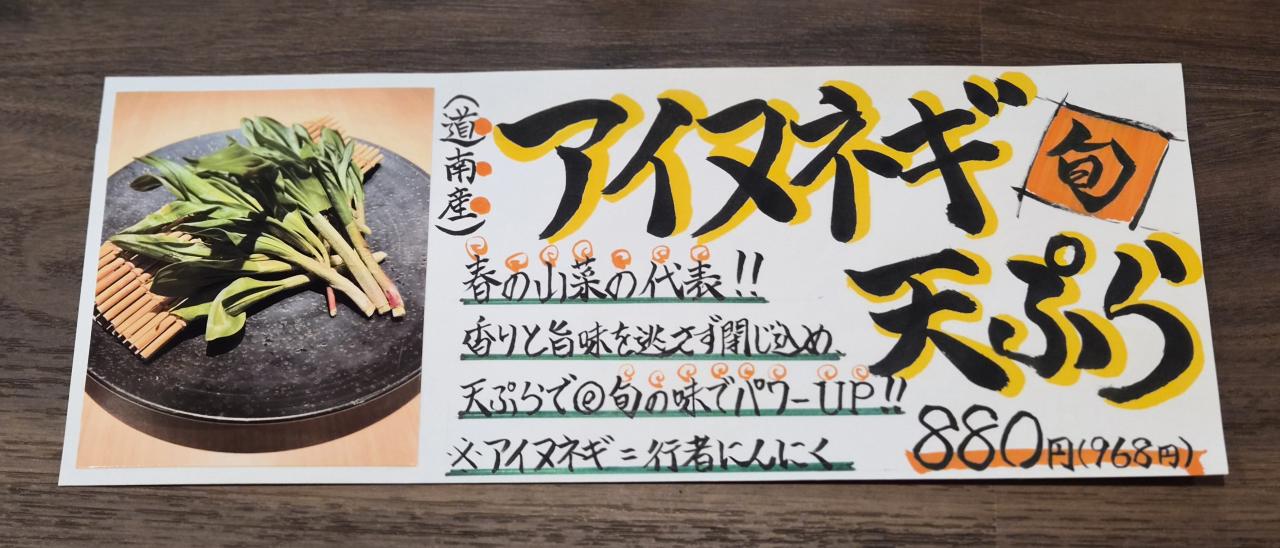 (道南産)
アイヌネギ
旬
天ぷら
春の山菜の代表!!
香りと旨味を逃さず閉じ込め
天ぷらで@旬の味でパワーUP!!
※アイヌネギ=行者にんにく
880円(968円)